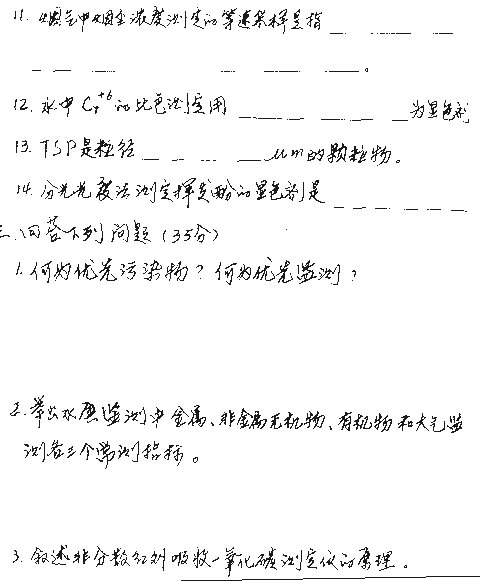 11. 烟气中烟尘浓度测定的等速采样是指 _ _ _ _
_ _ _ _ _ _ 。
12. 水中 Cr+6 的比色测定用 _ _ _ _ _ 为显色剂
13. TSP是粒径 _ _ _ _ _ μm的颗粒物。
14. 分光光度法测定挥发酚的显色剂是 _ _ _ _ _
三、回答下列问题(35分)
1. 何为优先污染物？何为优先监测？
2. 举出水质监测中金属、非金属无机物、有机物和大气监
测各三个常测指标。
3. 叙述非分散红外吸收一氧化碳测定仪的原理。